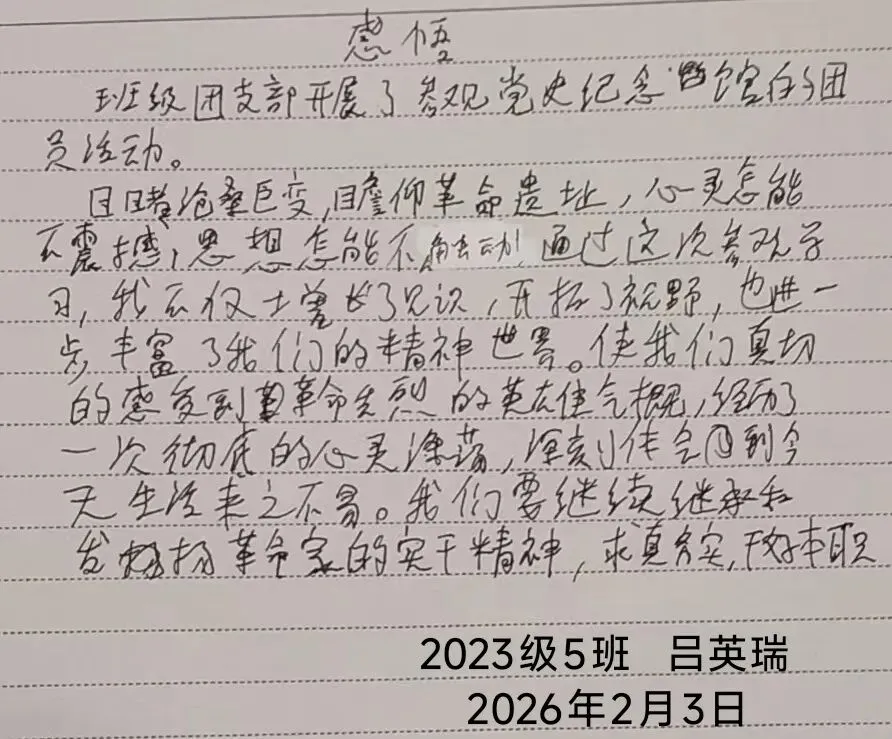 感悟
班级团支部开展了参观党史纪念馆的团
员活动。
目睹沧桑巨变,瞻仰革命遗址,心灵怎能
不震撼,思想怎能不触动!通过这次参观学
习,我不仅增长了见识,开拓了视野,也进一
步丰富了我们的精神世界。使我们真切
的感受到革命先烈的英雄气概,经历了
一次彻底的心灵涤荡,深刻体会到今
天生活来之不易。我们要继续继承和
发扬革命家的实干精神,求真务实,干好本职
2023级5班 吕英瑞
2026年2月3日